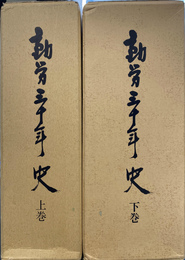 動労三十年史
上巻
動労三十年史
下巻